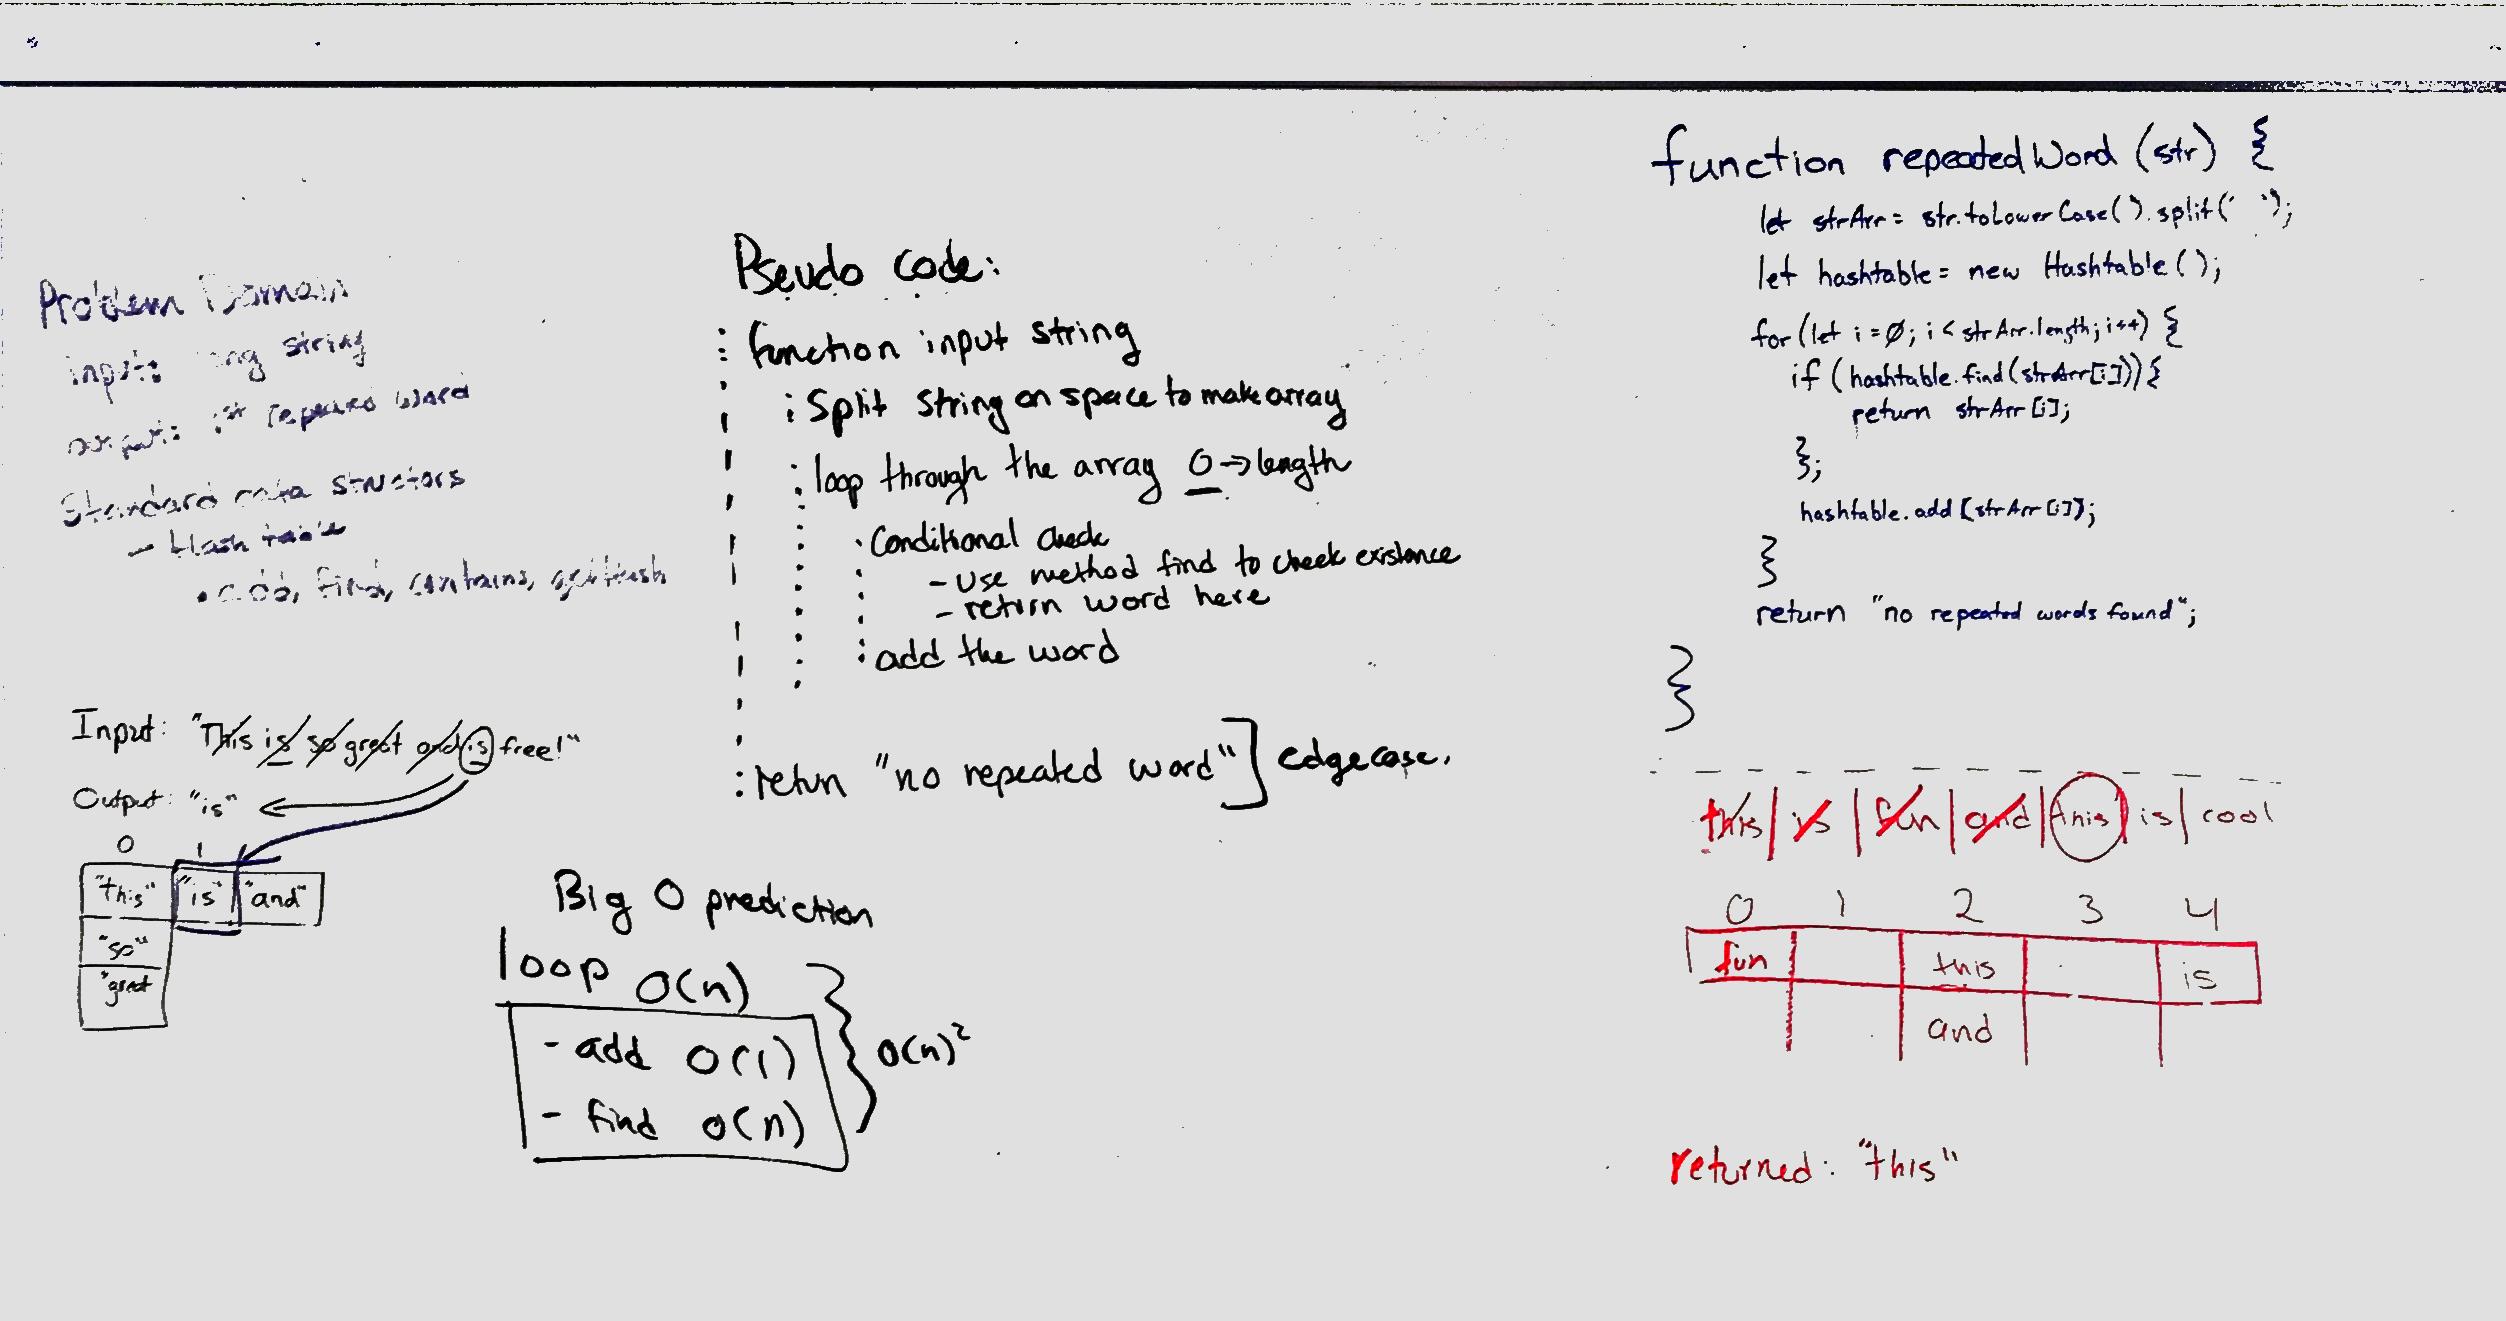 Problem Domain
input: long string
output: 1st repeated word
Standard data structors
- Hash table
• add, find, contains, getHash
Input: "This is so great and is free!"
Output: "is"
0 1
"this" "is" "and"
"so"
"great
Pseudo code:
function input string
Split string on space to make array
loop through the array 0 → length
Conditional check
- Use method find to check existance
- return word here
add the word
return "no repeated word" ] edgecase.
Big O prediction
loop O(n)
- add O(1)
- find O(n)
} O(n)²
function repeatedWord (str) {
let strArr = str.toLowerCase().split(' ');
let hashtable = new Hashtable();
for (let i = 0; i < strArr.length; i++) {
if (hashtable.find(strArr[i])) {
return strArr[i];
};
hashtable.add(strArr[i]);
}
return "no repeated words found";
}
this | is | fun | and | this | is | cool
0 1 2 3 4
fun this is
and
returned: "this"